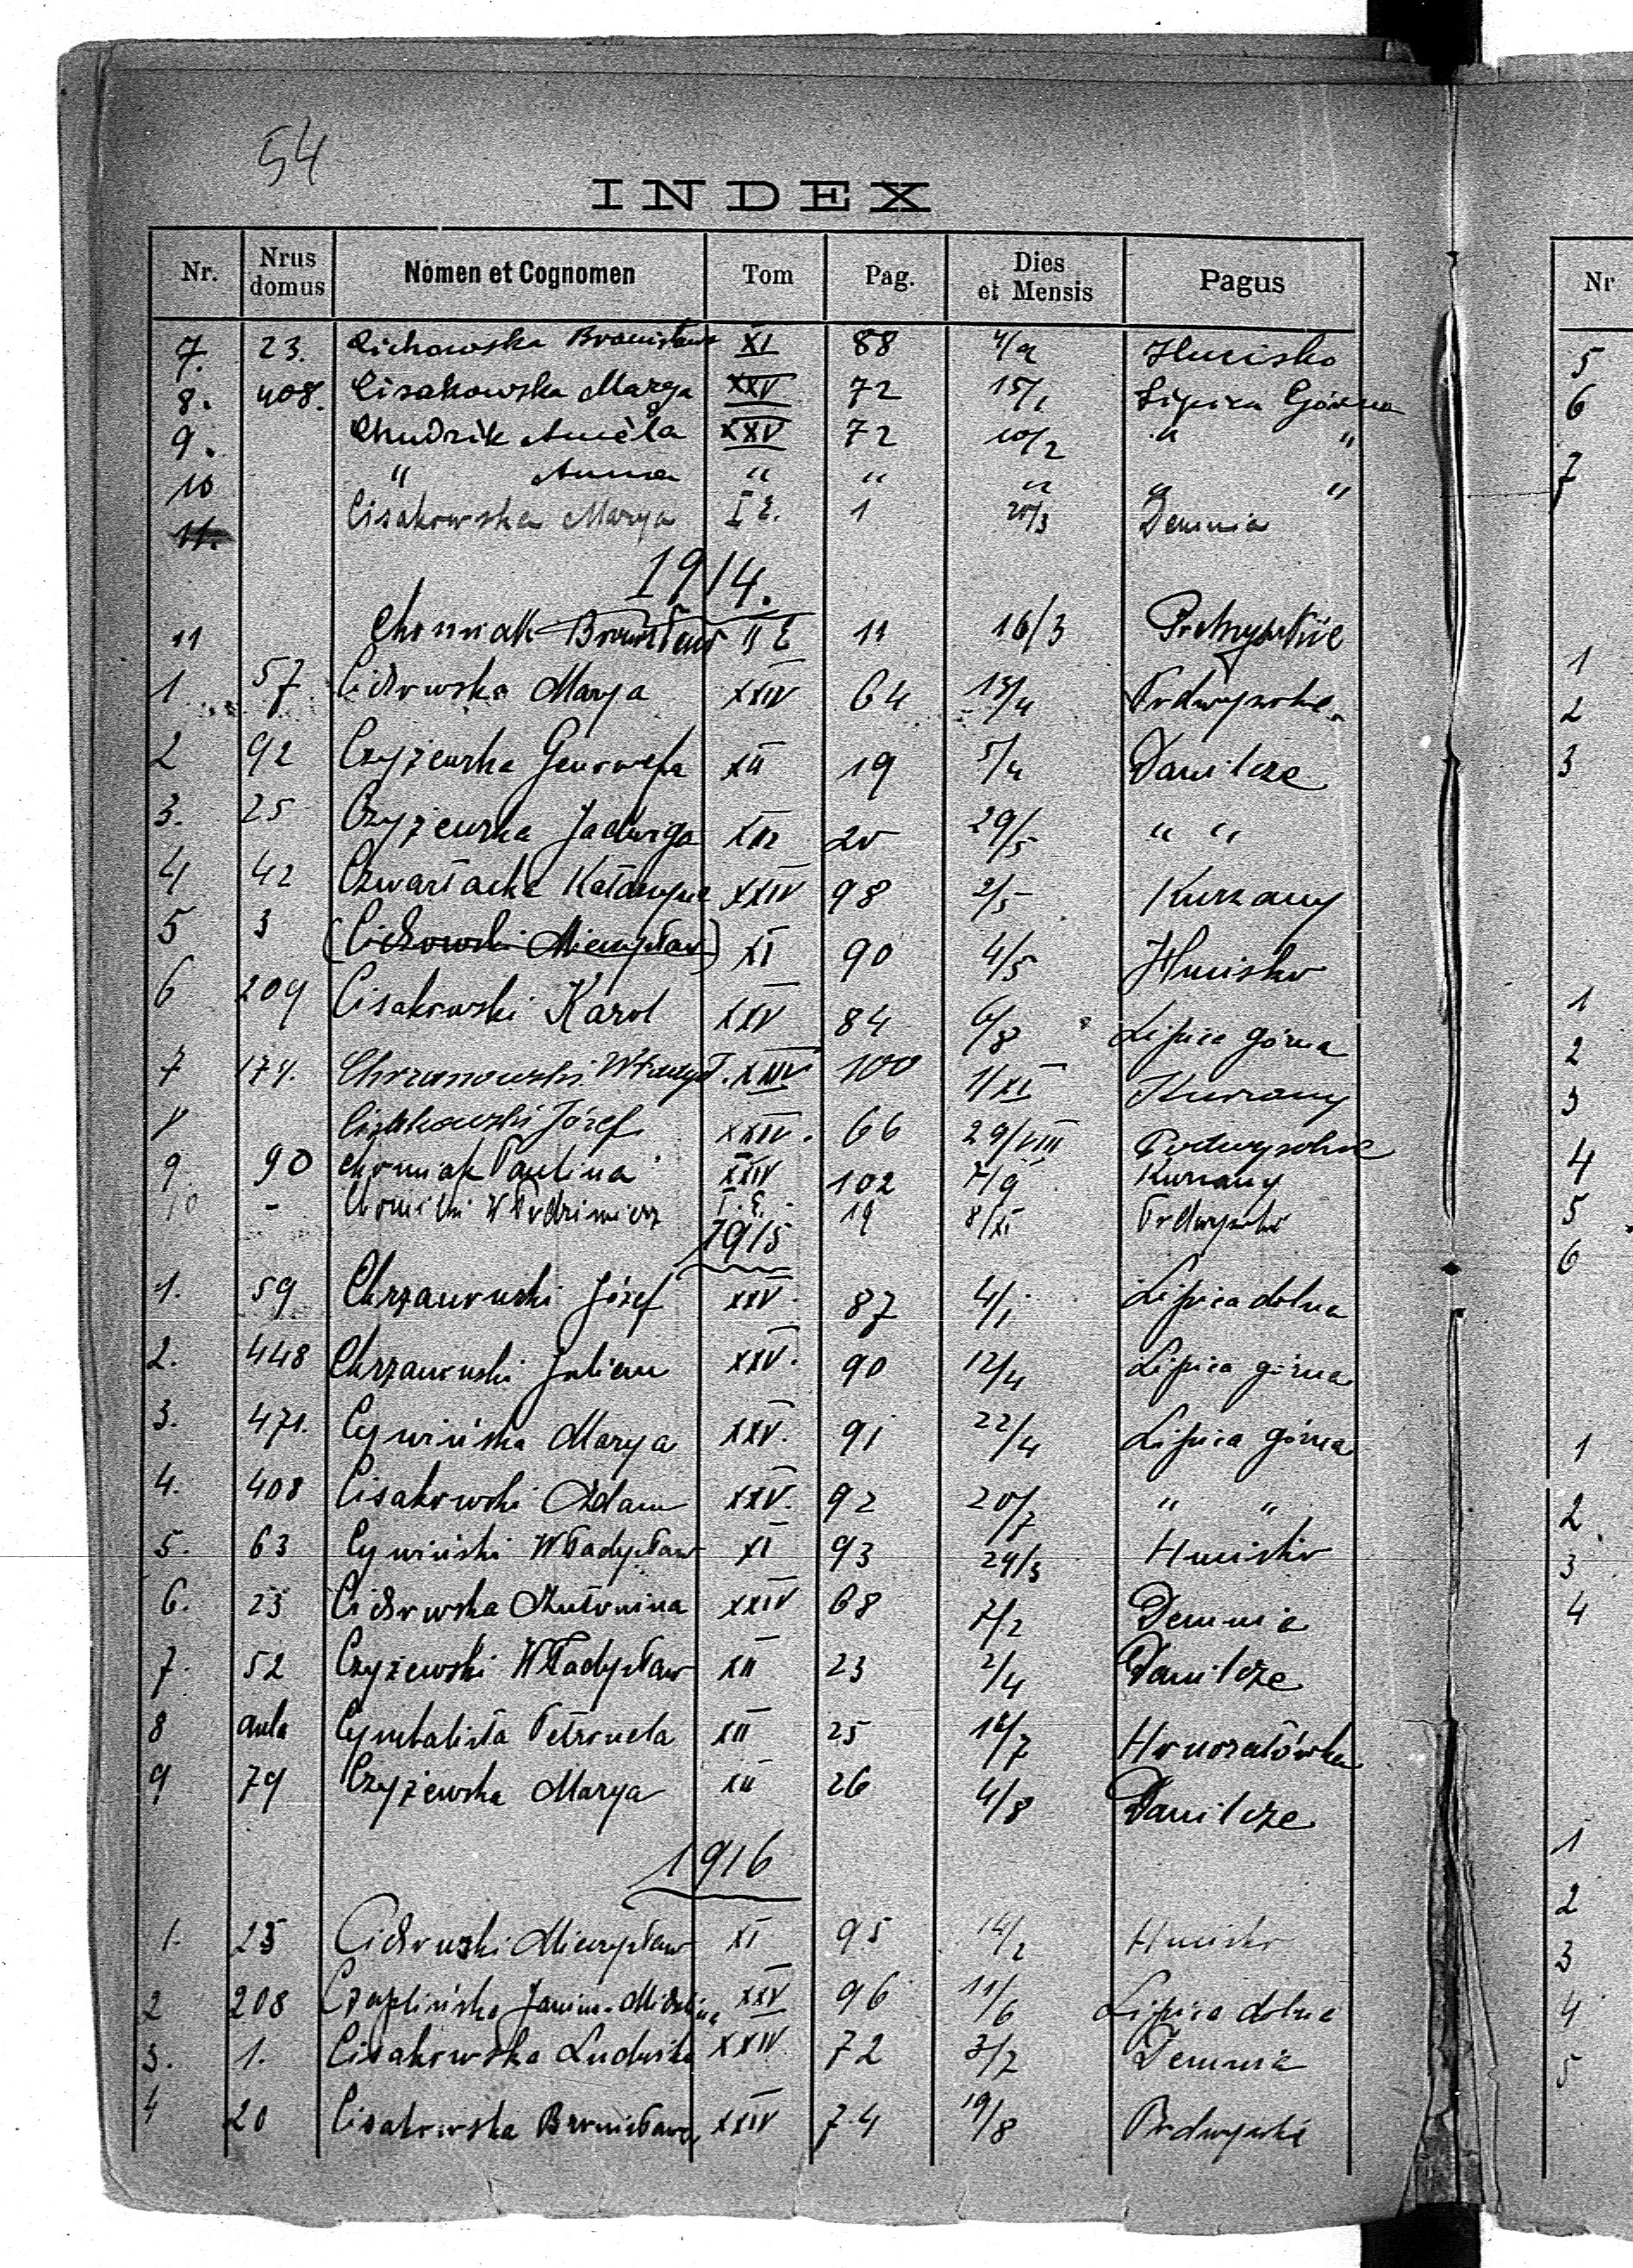 54
INDEX
Nr. Nrus domus Nomen et Cognomen Tom Pag. Dies et Mensis Pagus
7. 23. Cichowska Bronisława XI 88 4/9 Hucisko
8. 408. Cisakowska Marya XXV 72 15/1 Lipica Górna
9. Chudzik Aniela XXV 72 10/2 " "
10 " Anna " " " " "
11. Cisakowska Marya I E. 1 20/3 Demnia
1914.
11 Chomiak Bronisław II E 11 16/3
1 57 Cichowska Marya XXIV 64 13/4 Podwysokie
2 92 Czyżewska Genowefa XII 19 5/4 Danilcze
3. 25 Czyżewska Jadwiga XII 20 29/5 " "
4 42 Czwartacka Katarzyna XXIV 98 2/5 Kurzany
5 3 (Cichowski Mieczysław) XI 90 4/5 Hucisko
6 209 Cisakowski Karol XXV 84 6/8 Lipica górna
7 174. Chrzanowski Władysł. XXIV 100 1/XI Kurzany
8 Józef XXIV. 66 29/VIII Podwysokie
9. 90 Chomiak Paulina XXIV 102 7/9 Kurzany
10 - Włodzimierz I. E. 19 8/XI Podwysokie
1915
1. 59 Chrzanowski Józef XXV. 87 4/1 Lipica dolna
2. 448 Chrzanowski Julian XXV. 90 12/4 Lipica górna
3. 471. Cywińska Marya XXV. 91 22/4 Lipica górna
4. 408 Cisakowski Adam XXV. 92 20/7 " "
5. 63 Cywiński Władysław XI 93 24/3 Hucisko
6. 23 Cichowska Antonina XXIV 68 7/2 Demnia
7. 52 Czyżewski Władysław XII 23 2/4 Danilcze
8 aula Cymbalista Petronela XII 25 18/7 Honoratówka
9 79 Czyżewska Marya XII 26 4/8 Danilcze
1916
1. 23 Cichowski Mieczysław XI 95 14/2 Hucisko
2 208 Czaplińska Janina Michalina XXV 96 11/6 Lipica dolna
3. 1. Cisakowska Ludwika XXIV 72 3/7 Demnia
4 20 Cisakowska Bronisława XXIV 74 19/8 Podwysokie
Nr
5
6
7
1
2
3
1
2
3
4
5
6
1
2.
3
4
1
2
3
4
5